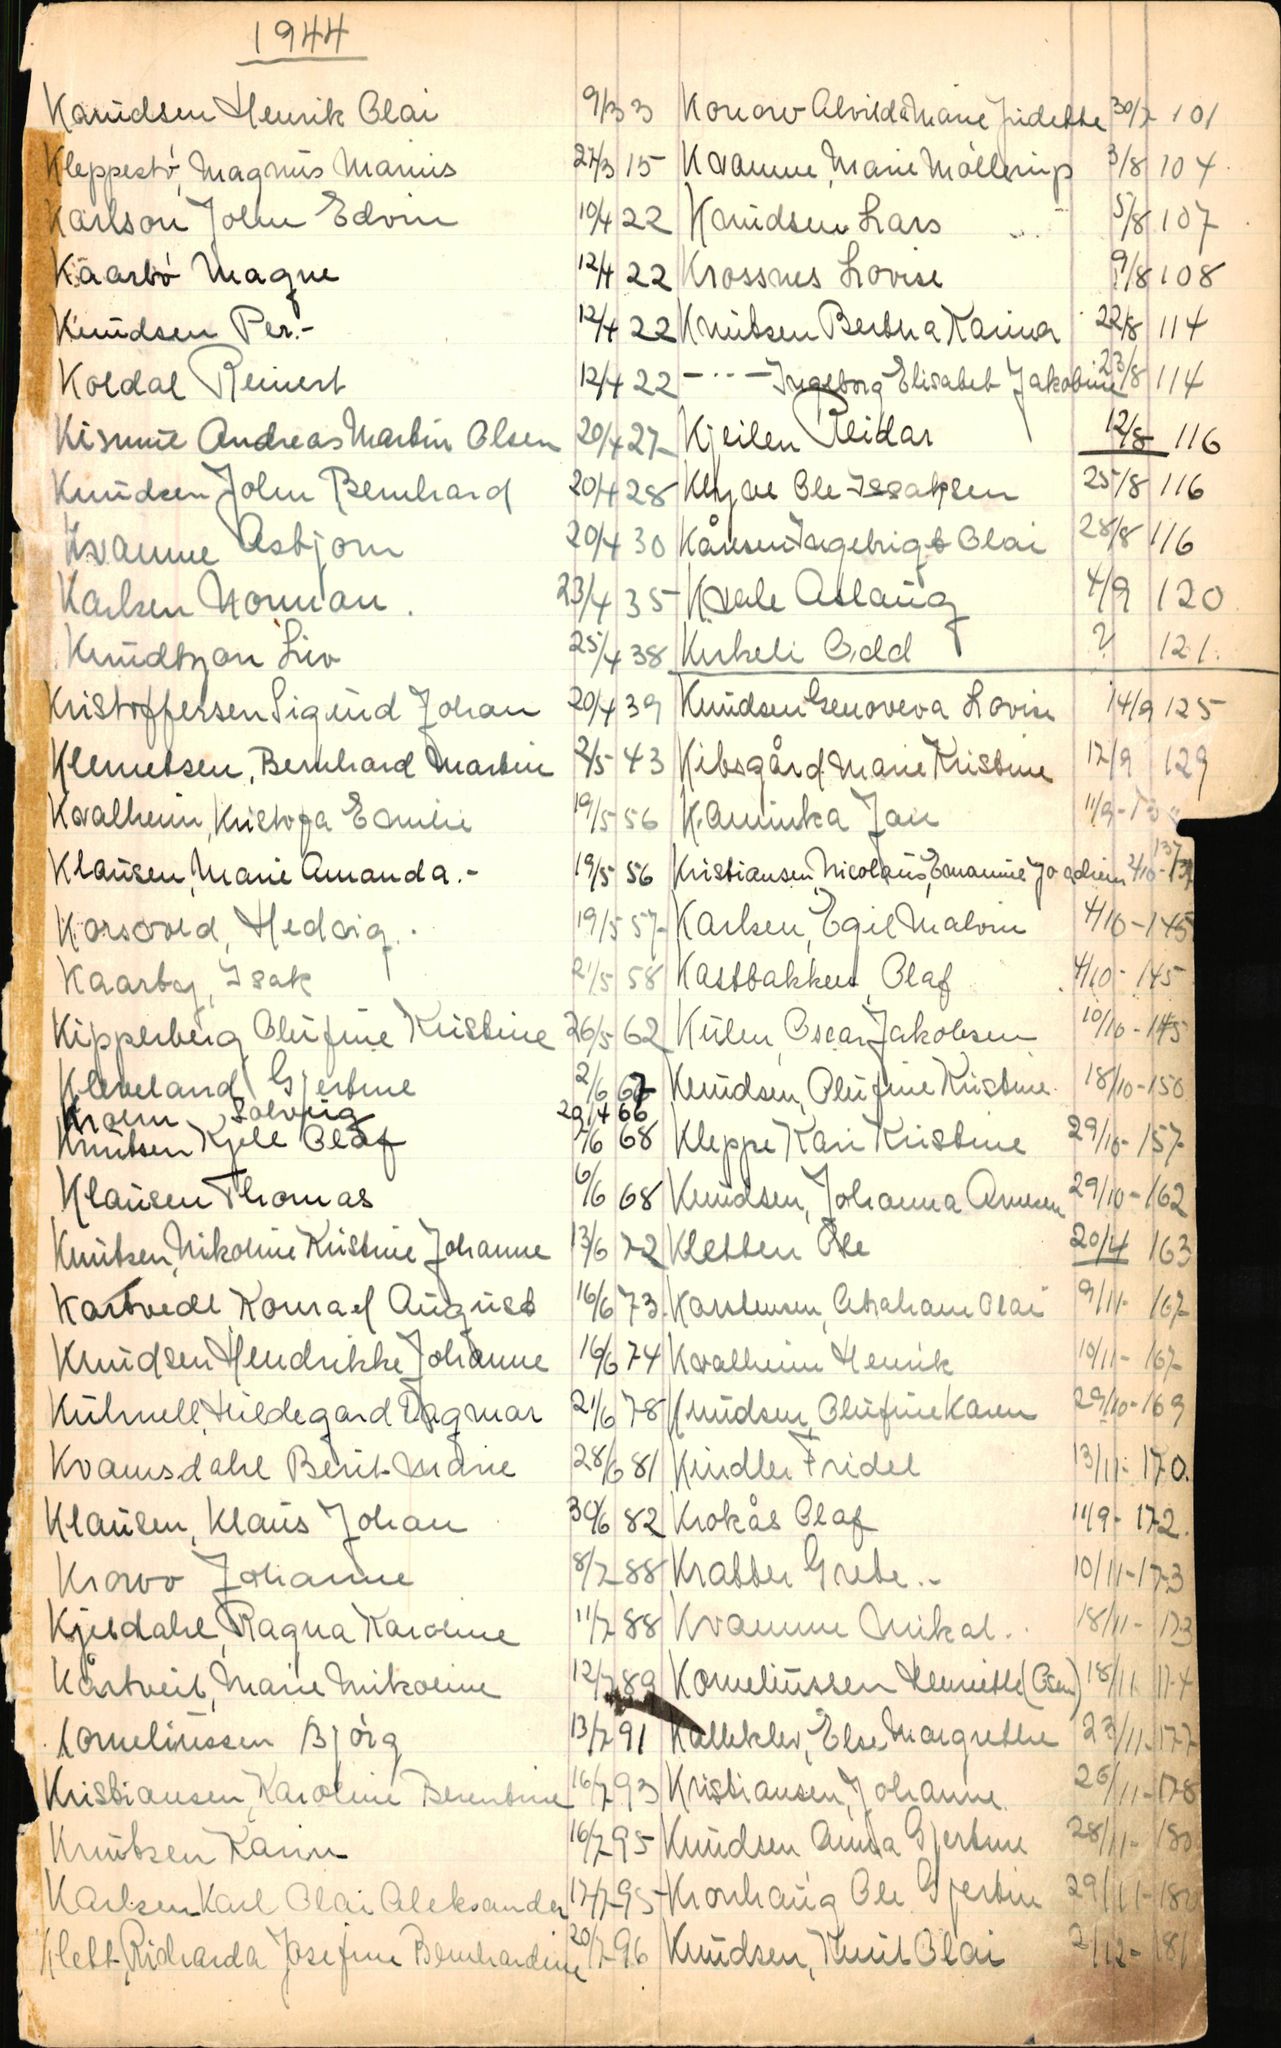 1944
Knudsen Henrik Olai 9/3 3
Kleppestö, Magnus Marius 27/3 15
Karlson John Edvin 10/4 22
Kaarbö Magne 12/4 22
Knudsen Per.- 12/4 22
Koldal Reinert 12/4 22
Kismul Andreas Martin Olsen 20/4 27
Knudsen John Bernhard 20/4 28
Kvamme Asbjorn 20/4 30
Karlsen Norman. 23/4 35
Knudtzon Liv 25/4 38
Kristoffersen Sigurd Johan 20/4 39
Klemetsen, Bernhard Martin 2/5 43
Kvalheim, Kristofa Emilie 19/5 56
Klausen, Marie Amanda.- 19/5 56
Korsvold, Hedvig. 19/5 57
Kaarby, Isak 21/5 58
Kipperberg, Olufine Kristine 26/5 62
Kleveland, Gjertine 2/6 67
Krohn Solveig 20/4 66
Knutsen Kjell Olaf 7/6 68
Klausen Thomas 6/6 68
Knutsen, Nikoline Kristine Johanne 13/6 72
Kartvedt, Konrad August 16/6 73
Knudsen Hendrikke Johanne 16/6 74
Kühnell, Hildegard Dagmar 21/6 78
Kvamsdahl Berit Marie 28/6 81
Klausen, Klaus Johan 30/6 82
Krowo Johanne 8/7 88
Kjebdahl, Ragna Karoline 11/7 88
Kårtveit, Marie Nikoline 12/7 89
Korneliussen Bjørg 13/7 91
Kristiansen, Karoline Berentine 16/7 93
Knutsen Karin 16/7 95
Karlsen Karl Olai Aleksander 17/7 95
Klett, Richarda Josefine Bernhardine 20/7 96
Konow Alvilda Marie Fridethe 30/7 101
Kvamme, Marie Möllerup 3/8 104
Knudsen Lars 5/8 107
Krossnes Lovise 9/8 108
Knutsen Bertha Karina 22/8 114
- --- - Ingeborg Elisabet Jakobine 23/8 114
Kjeilen Reidar 12/8 116
Klyve Ole Issaksen 25/8 116
Kånsen Ingebrigt Olai 28/8 116
Kvale Aslaug 4/9 120
Kirkeli Odd ? 121.
Knudsen Genoveva Lovise 14/9 125
Kibsgård Marie Kristine 17/9 129
Kaminka Jan 11/9-
Kristiansen, Nicolaus, Emanuel Joachim 2/10- 137
Karlsen, Egil Malvin 4/10-145
Kastbakken, Olaf 4/10-145
Kulen, Oscar Jakobsen 10/10-145
Knudsen, Olufine Kristine. 18/10-150
Kleppe Kari Kristine 29/10-157
Knudsen, Johanna Amesen 29/10-162
Kletten Ole 20/4 163
Karstensen, Abraham Olai 9/11- 167
Kvalheim Henrik 10/11- 167
Knudsen, Olufine Karen 29/10-169
Kindler Fridel 13/11- 170.
Krokås Olaf 11/9- 172.
Krabber Grete.. 10/11-173
Kvamme Mikal.. 18/11- 173
Korneliussen Henriette (Osen) 18/11 174
Kalleklev, Else Margrethe 23/11-177
Kristiansen, Johanne. 26/11-178
Knudsen Anna Gjertine 28/11- 180
Kronhaug Ole Gjertin 29/11-180
Knudsen, Knut Olai 2/12- 181